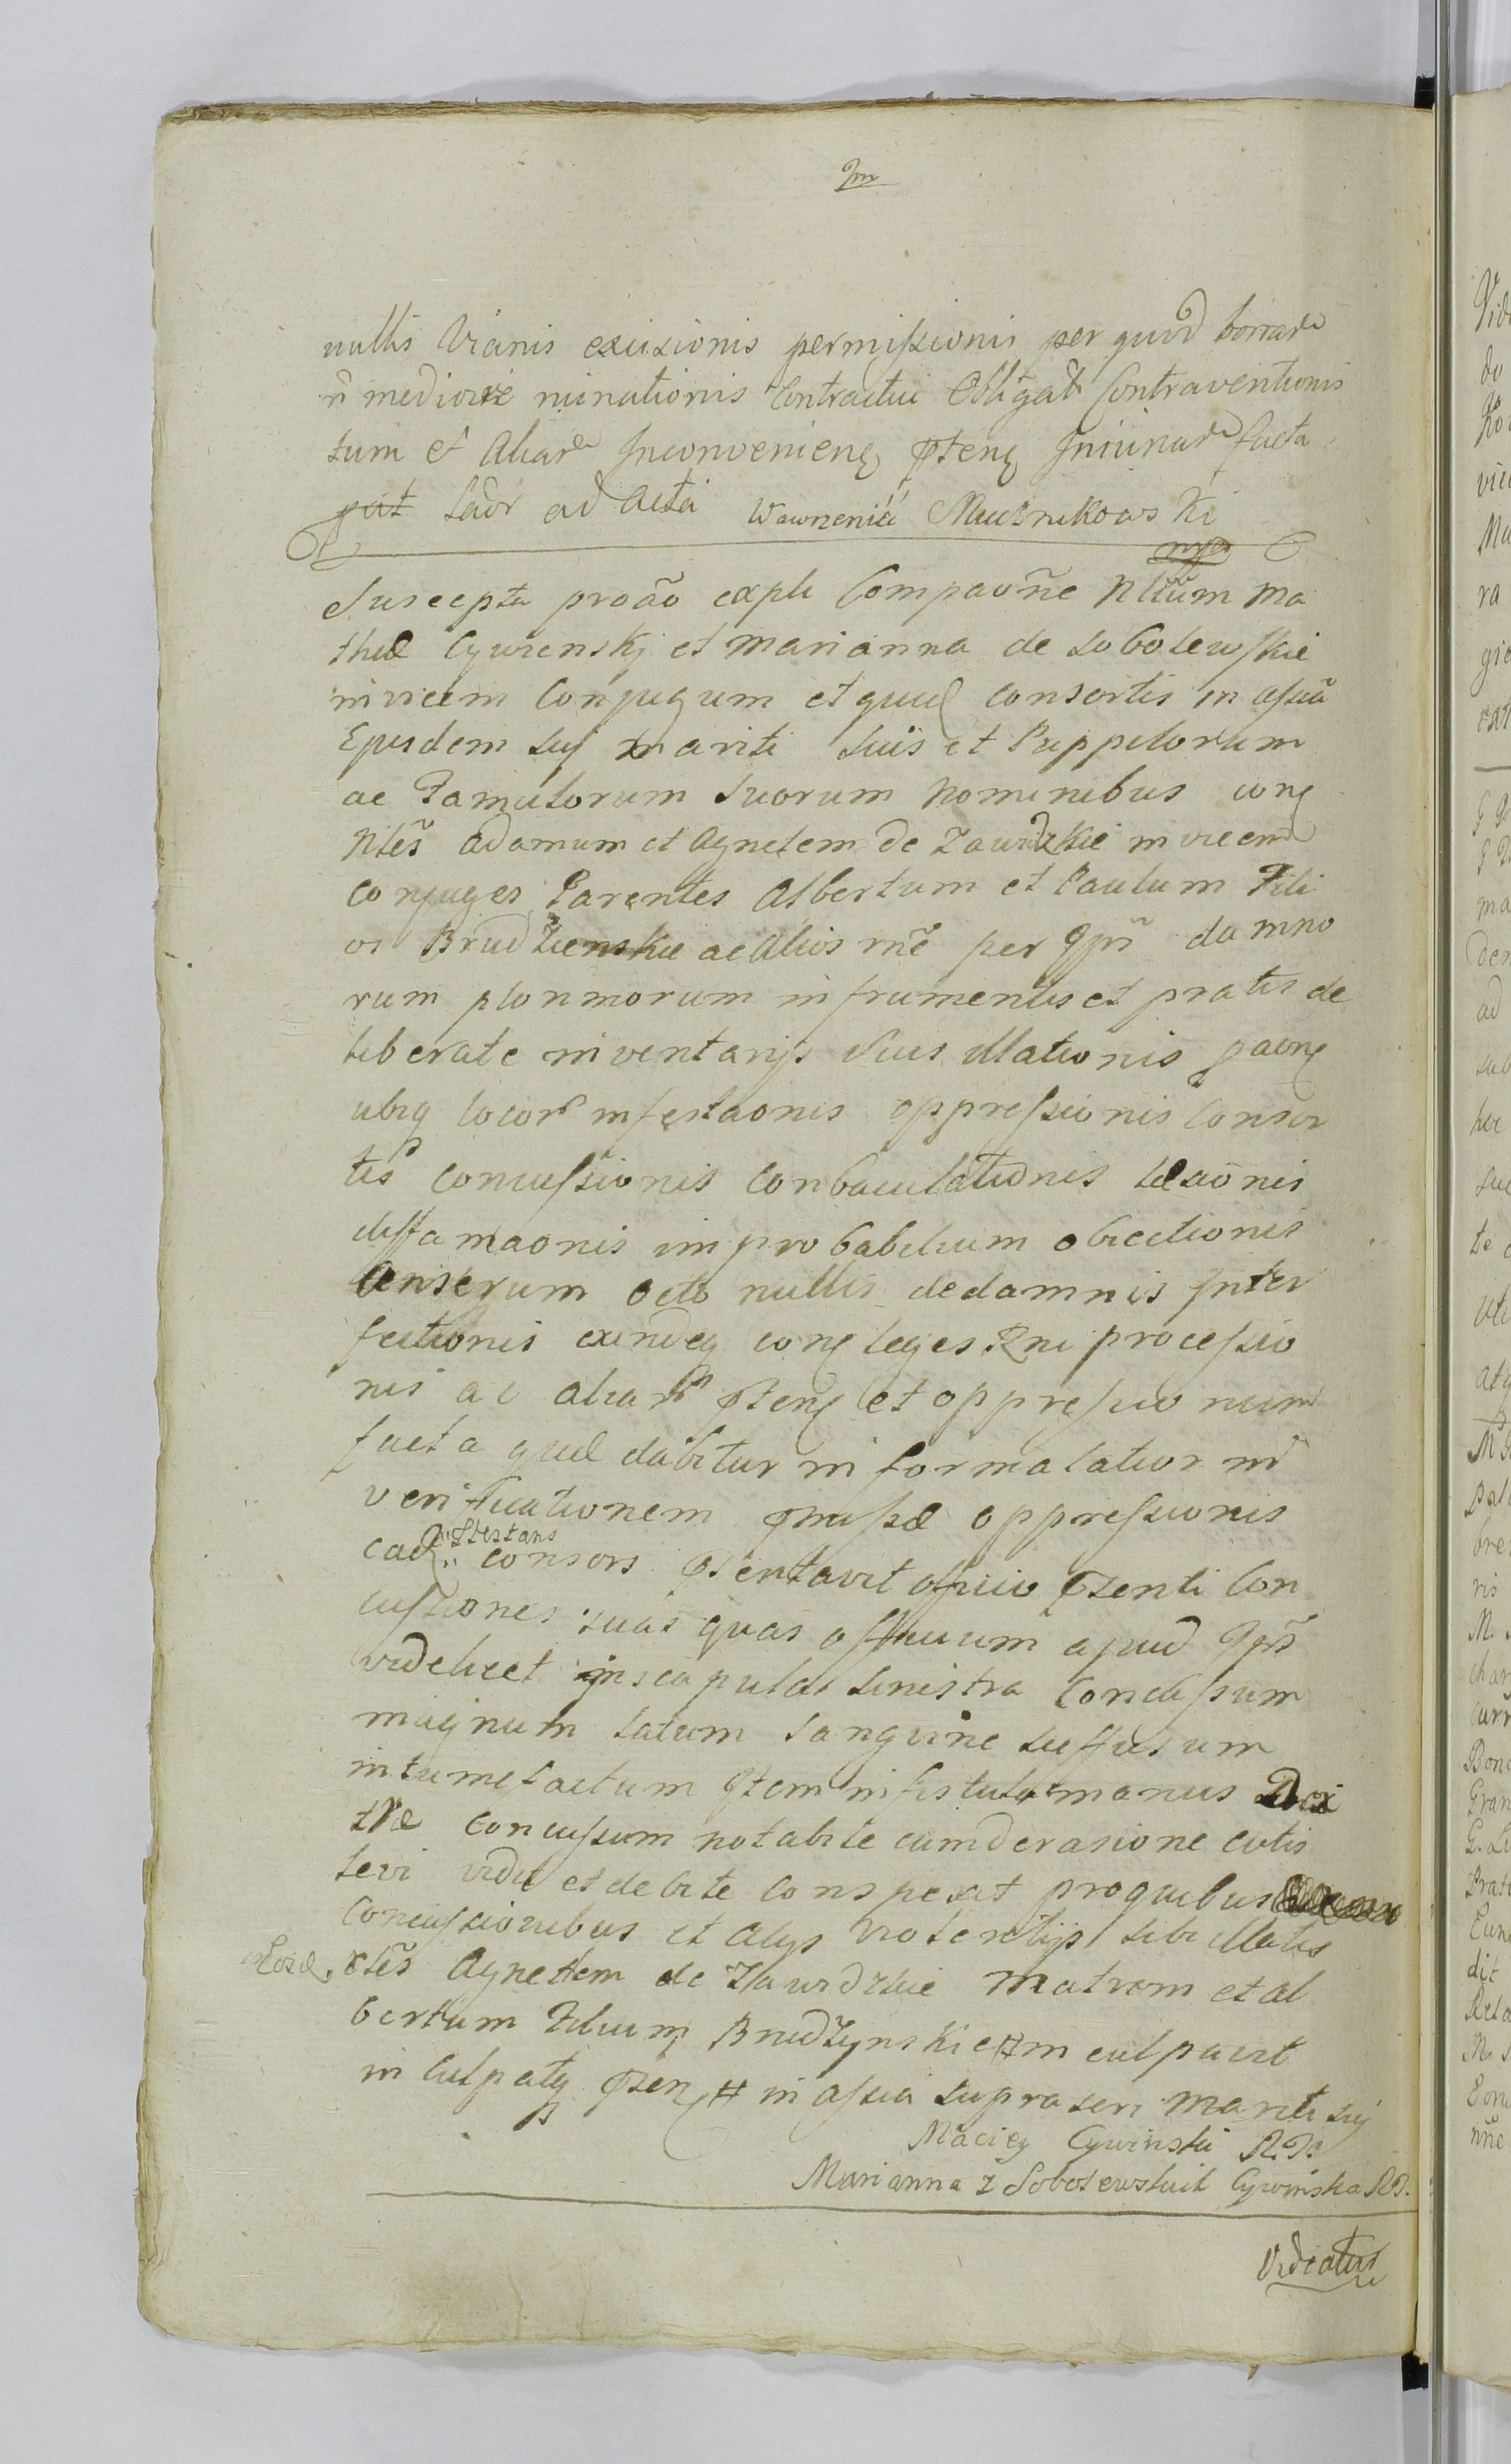 nullis Vicinis excisionis permissionis per quod borrarũ
ñ mediocre minutionis Contractui Obligat Contraventionis
tum et Aliarũ Inconvenienq pteng Iniuriarũ facta
Ladr ad Acta Wawrzeniec Mucznikowski
mp
Suscepta proão expli Compaoñe Nllũm Ma
thiæ Cywinskj et Marianna de Sobolewskie
invicem Conjugum et quidẽ Consortis in assiã
Ejusdem suj mariti suis et Puppilorum
ac Famulorum suorum Nominibus conq
Nltẽs Adamum et Agnetem de Zawidzkie invicem
Conjuges Parentes Albertum et Paulum Fili
os Brudzienskie ac Alios rñe per Qprñ damno
rum plurimorum in frumentis et pratis de
liberate inventarijs suis illationis paong
ubiq locorũ infestaonis oppressionis Consor
tis concussionis Conbaculationis læsaõnis
diffamaonis improbabilium obiectionis
Anserum octo nullis de damnis Inter
fectionis exindeq conq leges Rni processio
nis ac aliarũ pteng et oppressionum
facta quæ dabitur in forma latior in
verificationem præmissæ oppressionis
eadẽ Ptestans consors pntavit officio pnti Con
cussiones suas quas officium apud Qprñ
videlicet in scapula sinistra Concussum
magnum latum sanguine suffusum
intumefactum Item in fistula manus Dex
træ concussum notabile cum derasione cutis
levi vidit et debite Conspexit pro quibus
Concussionibus et Alijs violentijs sibi illatis
Eosdẽ rtẽs Agnetem de Zawidzkie Matrem et Al
bertum Filium Brudzynskie # in culpavit
inculpatq pteng # in assia suprascri Mariti suj
Maciey Cywinski R.P.
Marianna z Sobolewskich Cywinska R.P.
Videatur